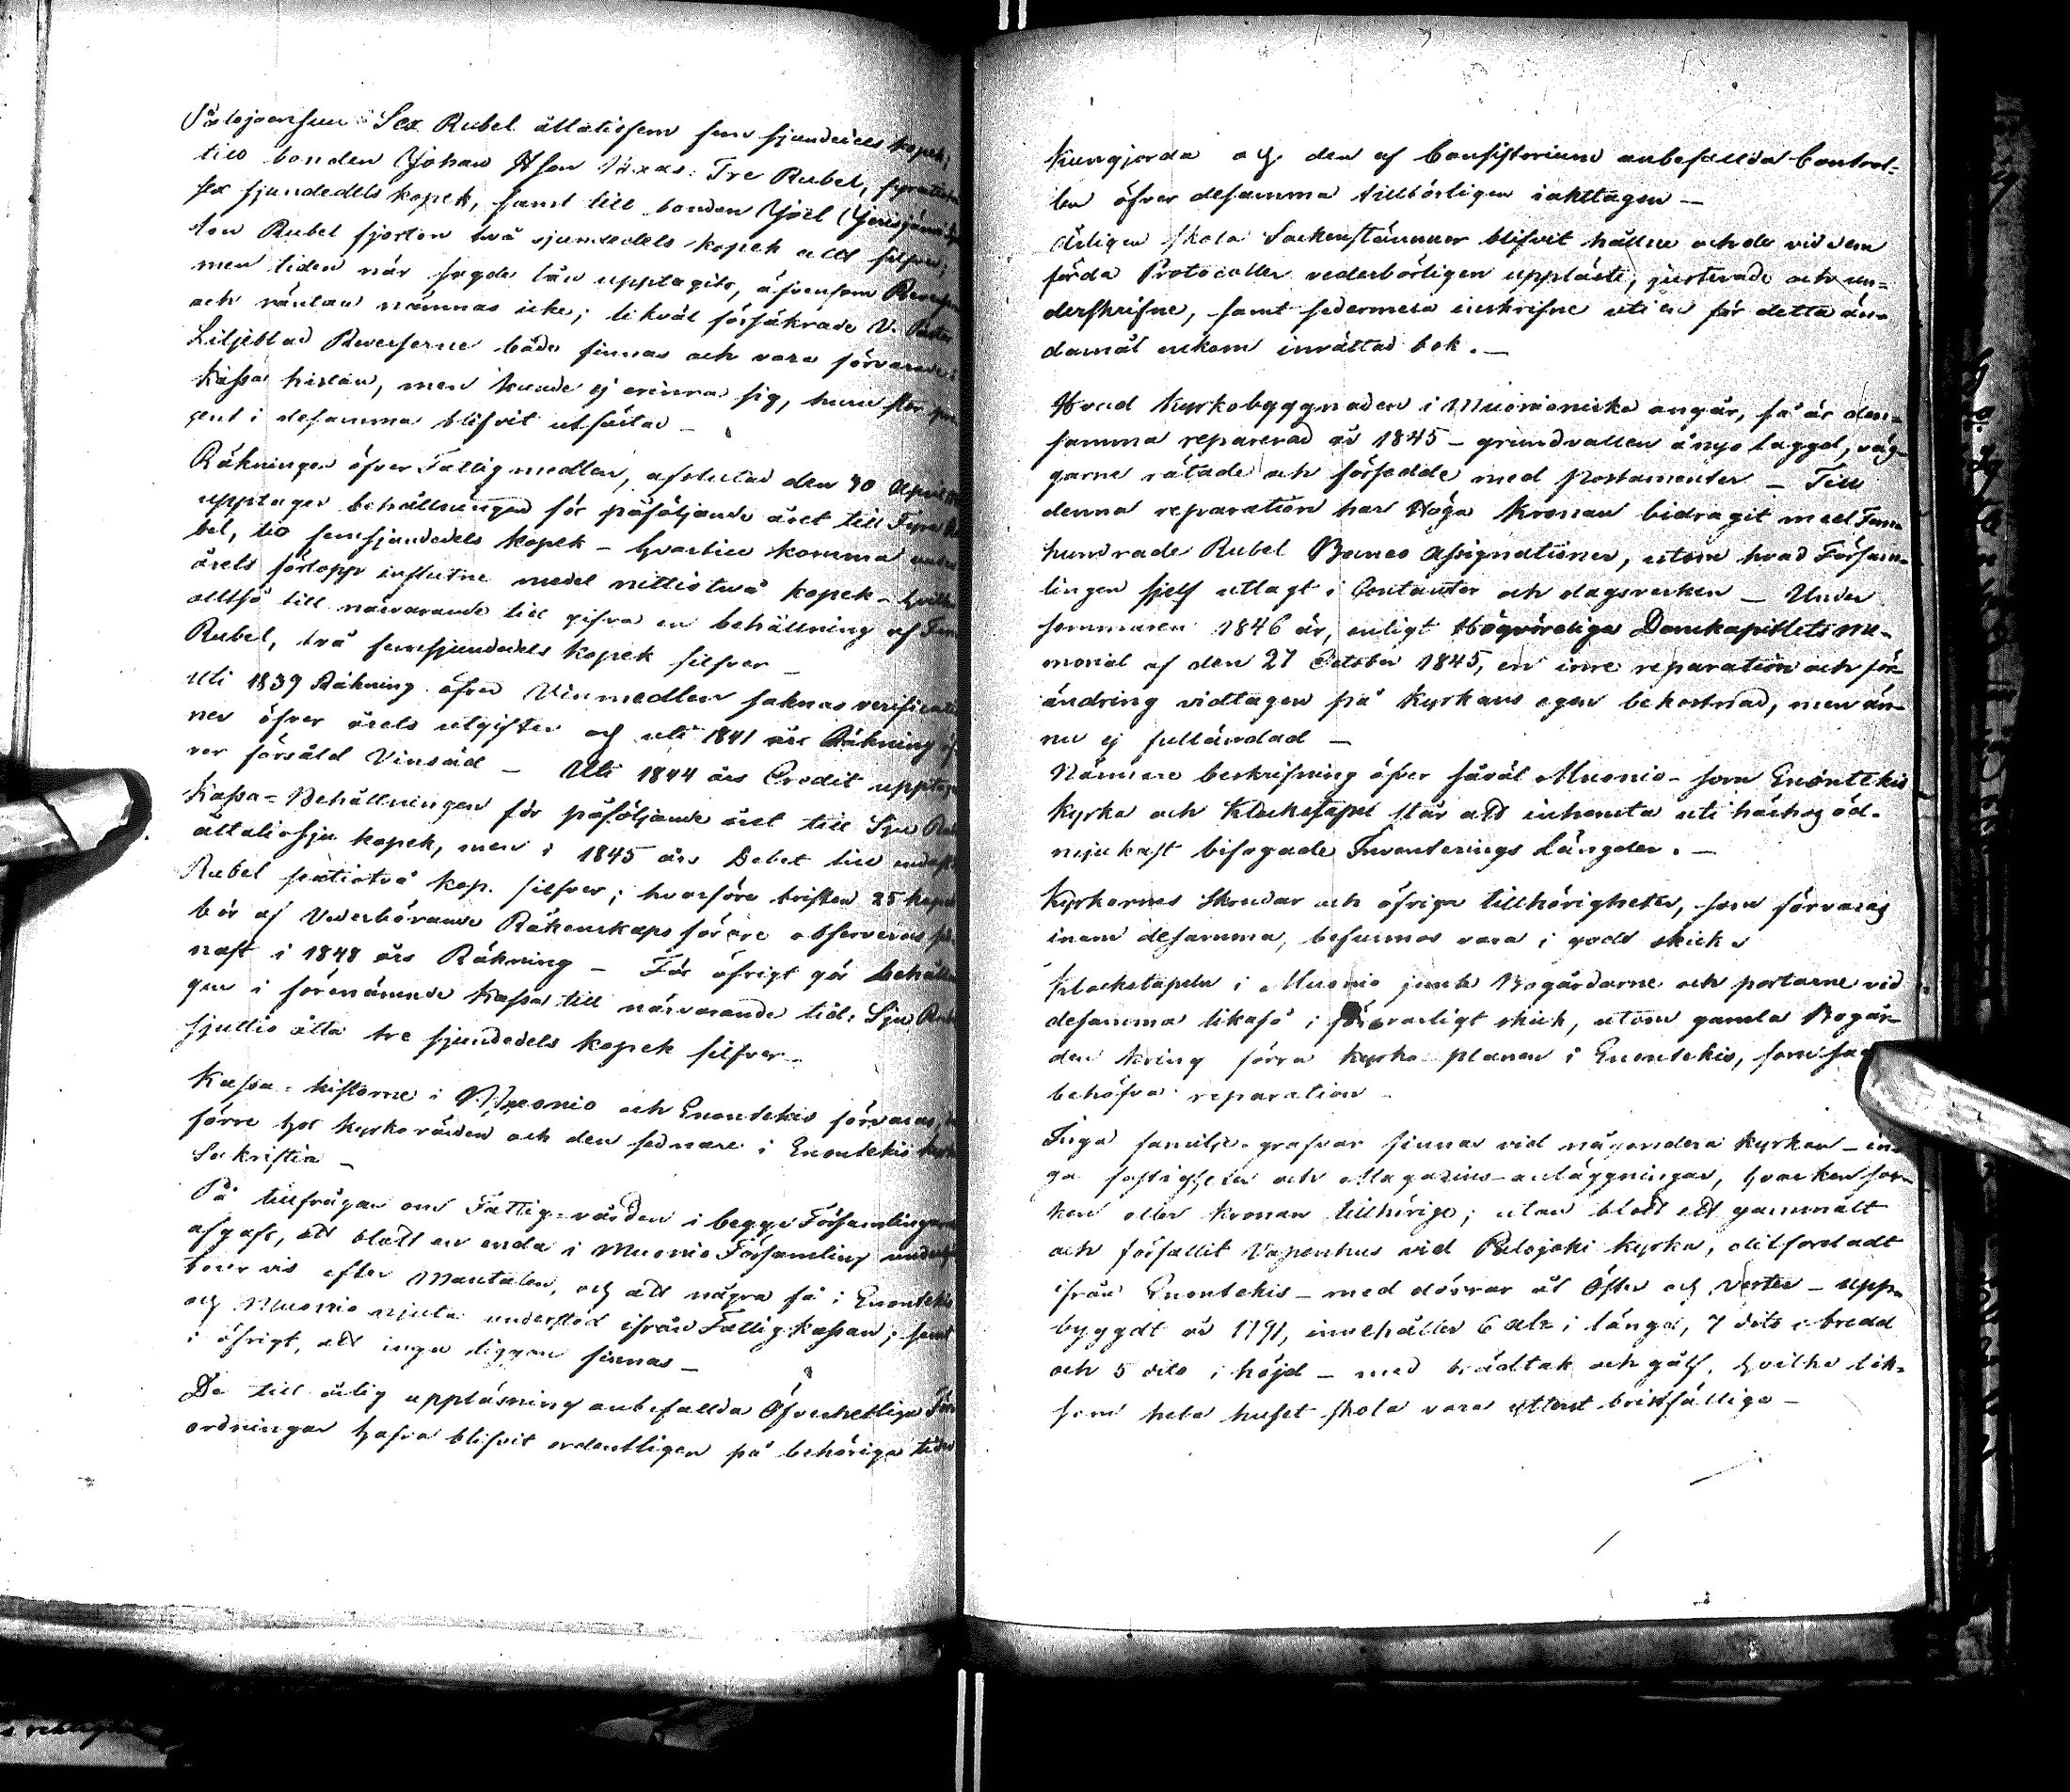 Sex Rubel åttatiofem fem sjundedels kopek,
till bonden Johan Tre Rubel, fyratio
sex sjundedels kopek, samt till bonden Joel
ton Rubel fjorton två sjundedels kopek allt silfver;
men tiden når sagde lån upptagits, äfvensom
och räntan nämnas icke; likväl försäkrade V. Pastor
Liljeblad Reverserne både finnas och vara förvarade i
Kassa kistan, men kunde ej erinra sig, huru stor pro
cent i desamma blifvit utfästad _
Räkningen öfver Fattigmedlen, afslutad den 30 April
upptager behållningen för påföljande året till Fyra Ru
bel, tio femsjundedels kopek - hvartill komma under
årets förlopp influtne medel nittiotvå kopek - hvilka
alltså till närvarande tid gifva en behållning af Fem
Rubel, två femsjundedels kopek silfver _
Uti 1839 Räkning öfver Vinmedlen saknas verificatio
ner öfver årets utgifter och uti 1841 års Räkning öf
ver försåld Vinsäd _ Uti 1844 års Credit upptages
Kassa-Behållningen för påföljande året till Sju Rubel
åttatiosju kopek, men i 1845 års Debet till endast
Rubel sextiotvå kop. silfver; hvarföre bristen 25 kopek
bör af Vederbörande Räkenskapsförare observeras
nast i 1848 års Räkning _ För öfrigt går behållnin
gen i förenämnde Kassa till närvarande tid: Sju Rubel
sjuttio åtta tre sjundedels kopek silfver _
Kassa-kistorne i Muonio och Enontekis förvaras, den
förre hos kyrkovärden och den sednare i Enontekis kyrkas
Sakristia _
På tillfrågan om Fattig-vården i begge Församlingarne
afgafs, att blott en enda i Muonio Församling
vis efter Mantalen, och att några få i Enontekis
och Muonio njuta understöd ifrån Fattig-Kassan; samt
i öfrigt, att inga tiggare finnas _
De till årlig uppläsning anbefallda Öfverhetliga För
ordningar hafva blifvit ordentligen på behöriga tider
Kungjorda och den af Consistorium anbefallda Control-
len öfver desamma tillbörligen iakttagen _
Årligen skola Sockenstämmor blifvit hållne och de vid dem
förda Protocoller vederbörligen uppläste, justerade och un-
derskrifne, samt sedermera inskrifne uti en för detta än-
damål enkom inrättad bok. _
Hvad Kyrkobyggnaden i Muonioniska angår, så är den-
samma reparerad år 1845 - grundvallen ånyo laggd, väg-
garne rätade och försedde med Postamenter _ Till
denna reparation har Höga Kronan bidragit med Fem
hundrade Rubel Banco Assignationer, utom hvad Försam-
lingen sjelf utlagt i Contanter och dagsverken _ Under
sommaren 1846 är, enligt Högvördiga Domkapitlets Me-
morial af den 27 October 1845, en inre reparation och för-
ändring vidtagen på Kyrkans egen bekostnad, men än-
nu ej fulländad _
Närmare beskrifning öfver såväl Muonio- som Enontekis
Kyrka och Klockstapel står att inhemta uti härhos öd-
mjukast bifogade Inventerings Längder. _
Kyrkornes Skrudar och öfriga tillhörigheter, som förvaras
inom desamma, befunnos vara i godt skick
Klockstapeln i Muonio jemte Bogårdarne och portarne vid
desamma likaså i skick, utom gamla Bogår-
den kring förra kyrko planen i Enontekis, som
behöfva reparation _
Inga familje-grafvar finnas vid någondera kyrkan - in-
ga fastigheter och Magazins-anläggningar, hvarken soc-
ken eller Kronan tillhörige; utan blott ett gammalt
och förfallit Vapenhus vid Palojoki kyrka, ditforsladt
ifrån Enontekis - med dörrar åt Öster och Vester - upp-
byggdt år 1791, innehåller 6 alr i längd, 7 dito i bredd
och 5 dito i höjd - med brädtak och gålf, hvilka lik-
som hela huset skola vara ytterst bristfälliga _